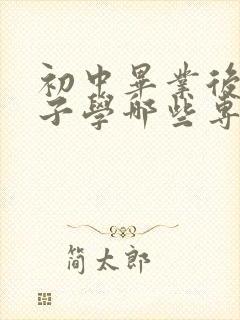 初中畢業後
子學哪些專
简太郎